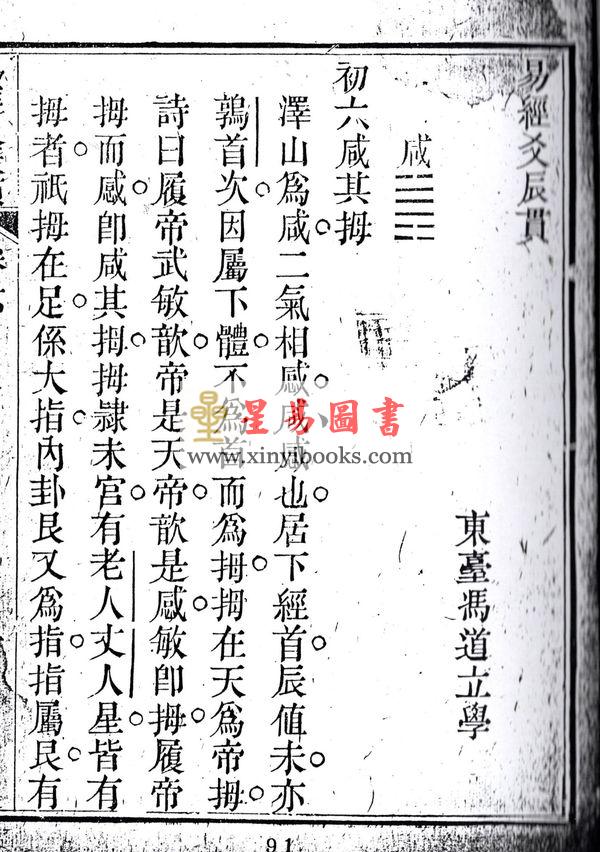 易經爻辰貫
東臺馮道立學
咸䷞
初六咸其拇
澤山為咸二氣相感咸感也居下經首辰値未亦
鶉首次因屬下體不為首而為拇拇在天為帝拇
詩曰履帝武敏歆帝是天帝歆是感敏卽拇履帝
拇而感卽咸其拇拇隷未宮有老人丈人星皆有
拇者祇拇在足係大指內卦艮又為指指屬民有
星易圖書
www.xinyibooks.com
91